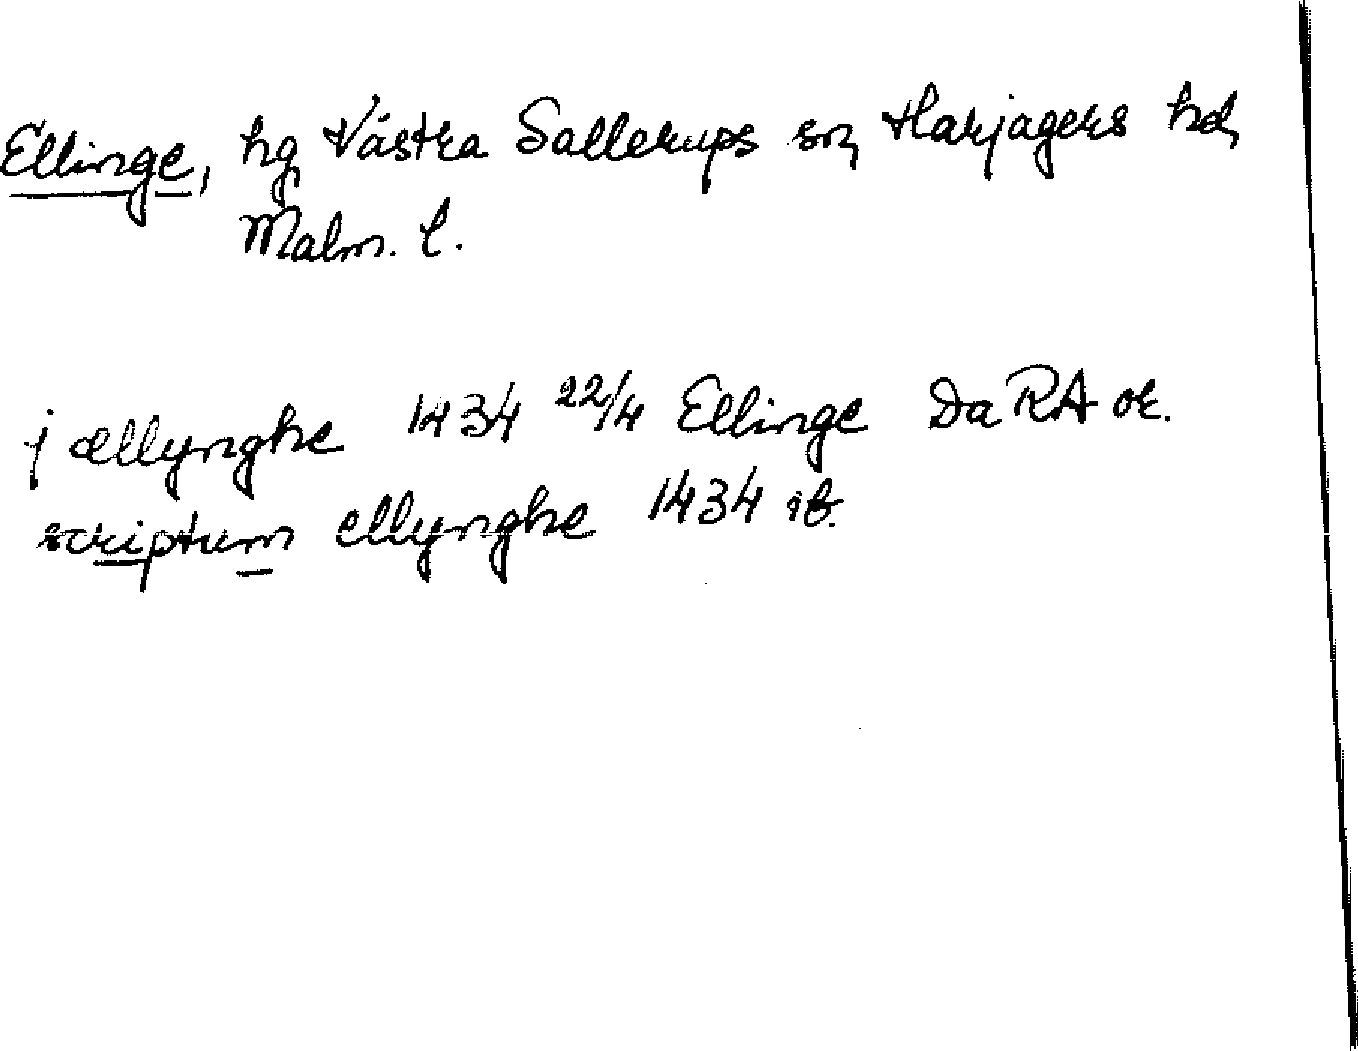 Ellinge, hg Västra Sallerups sn, Harjagers hd,
Malm. l.
j ællynghe 1434 22/4 Ellinge DaRA or.
scriptum ellynghe 1434 ib.